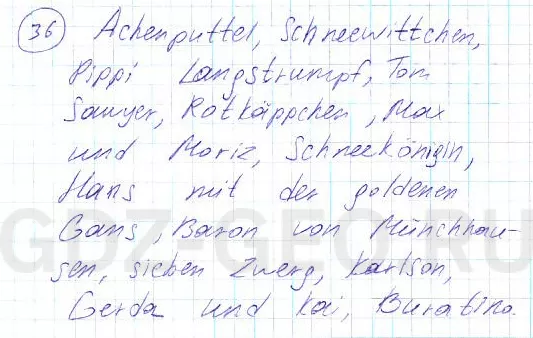 36 Achenputtel, Schneewittchen,
Pippi Langstrumpf, Tom
Sawyer, Rotkäppchen, Max
und Moriz, Schneekönigin,
Hans mit der goldenen
Gans, Baron von Münchhau-
sen, sieben Zwerg, Karlson,
Gerda und Kai, Buratino.
GDZ-GEO.RU